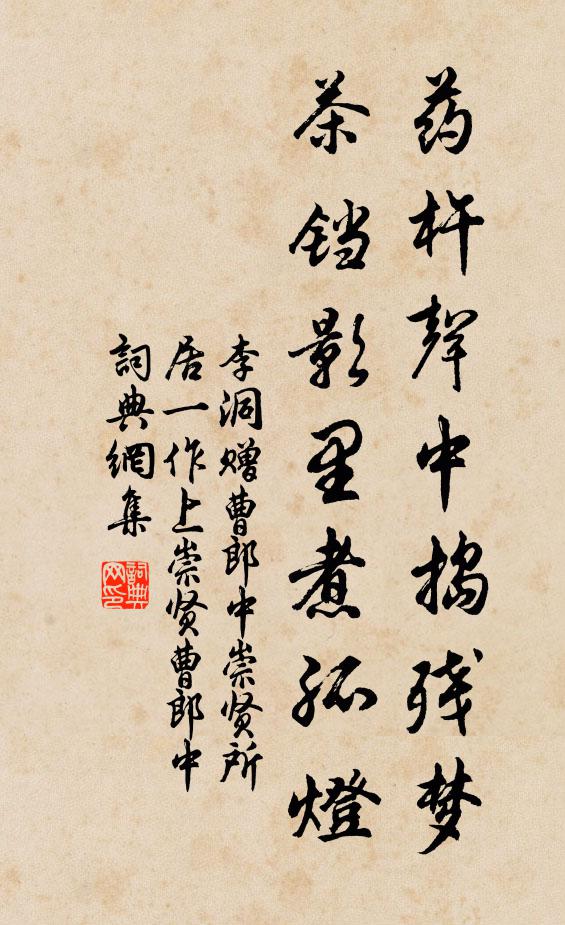 药杵聲中搗残梦
茶铛影里煮孤燈
李洞赠曹郎中崇贤所
居一作上崇贤曹郎中
詞典網集
詞典
网印